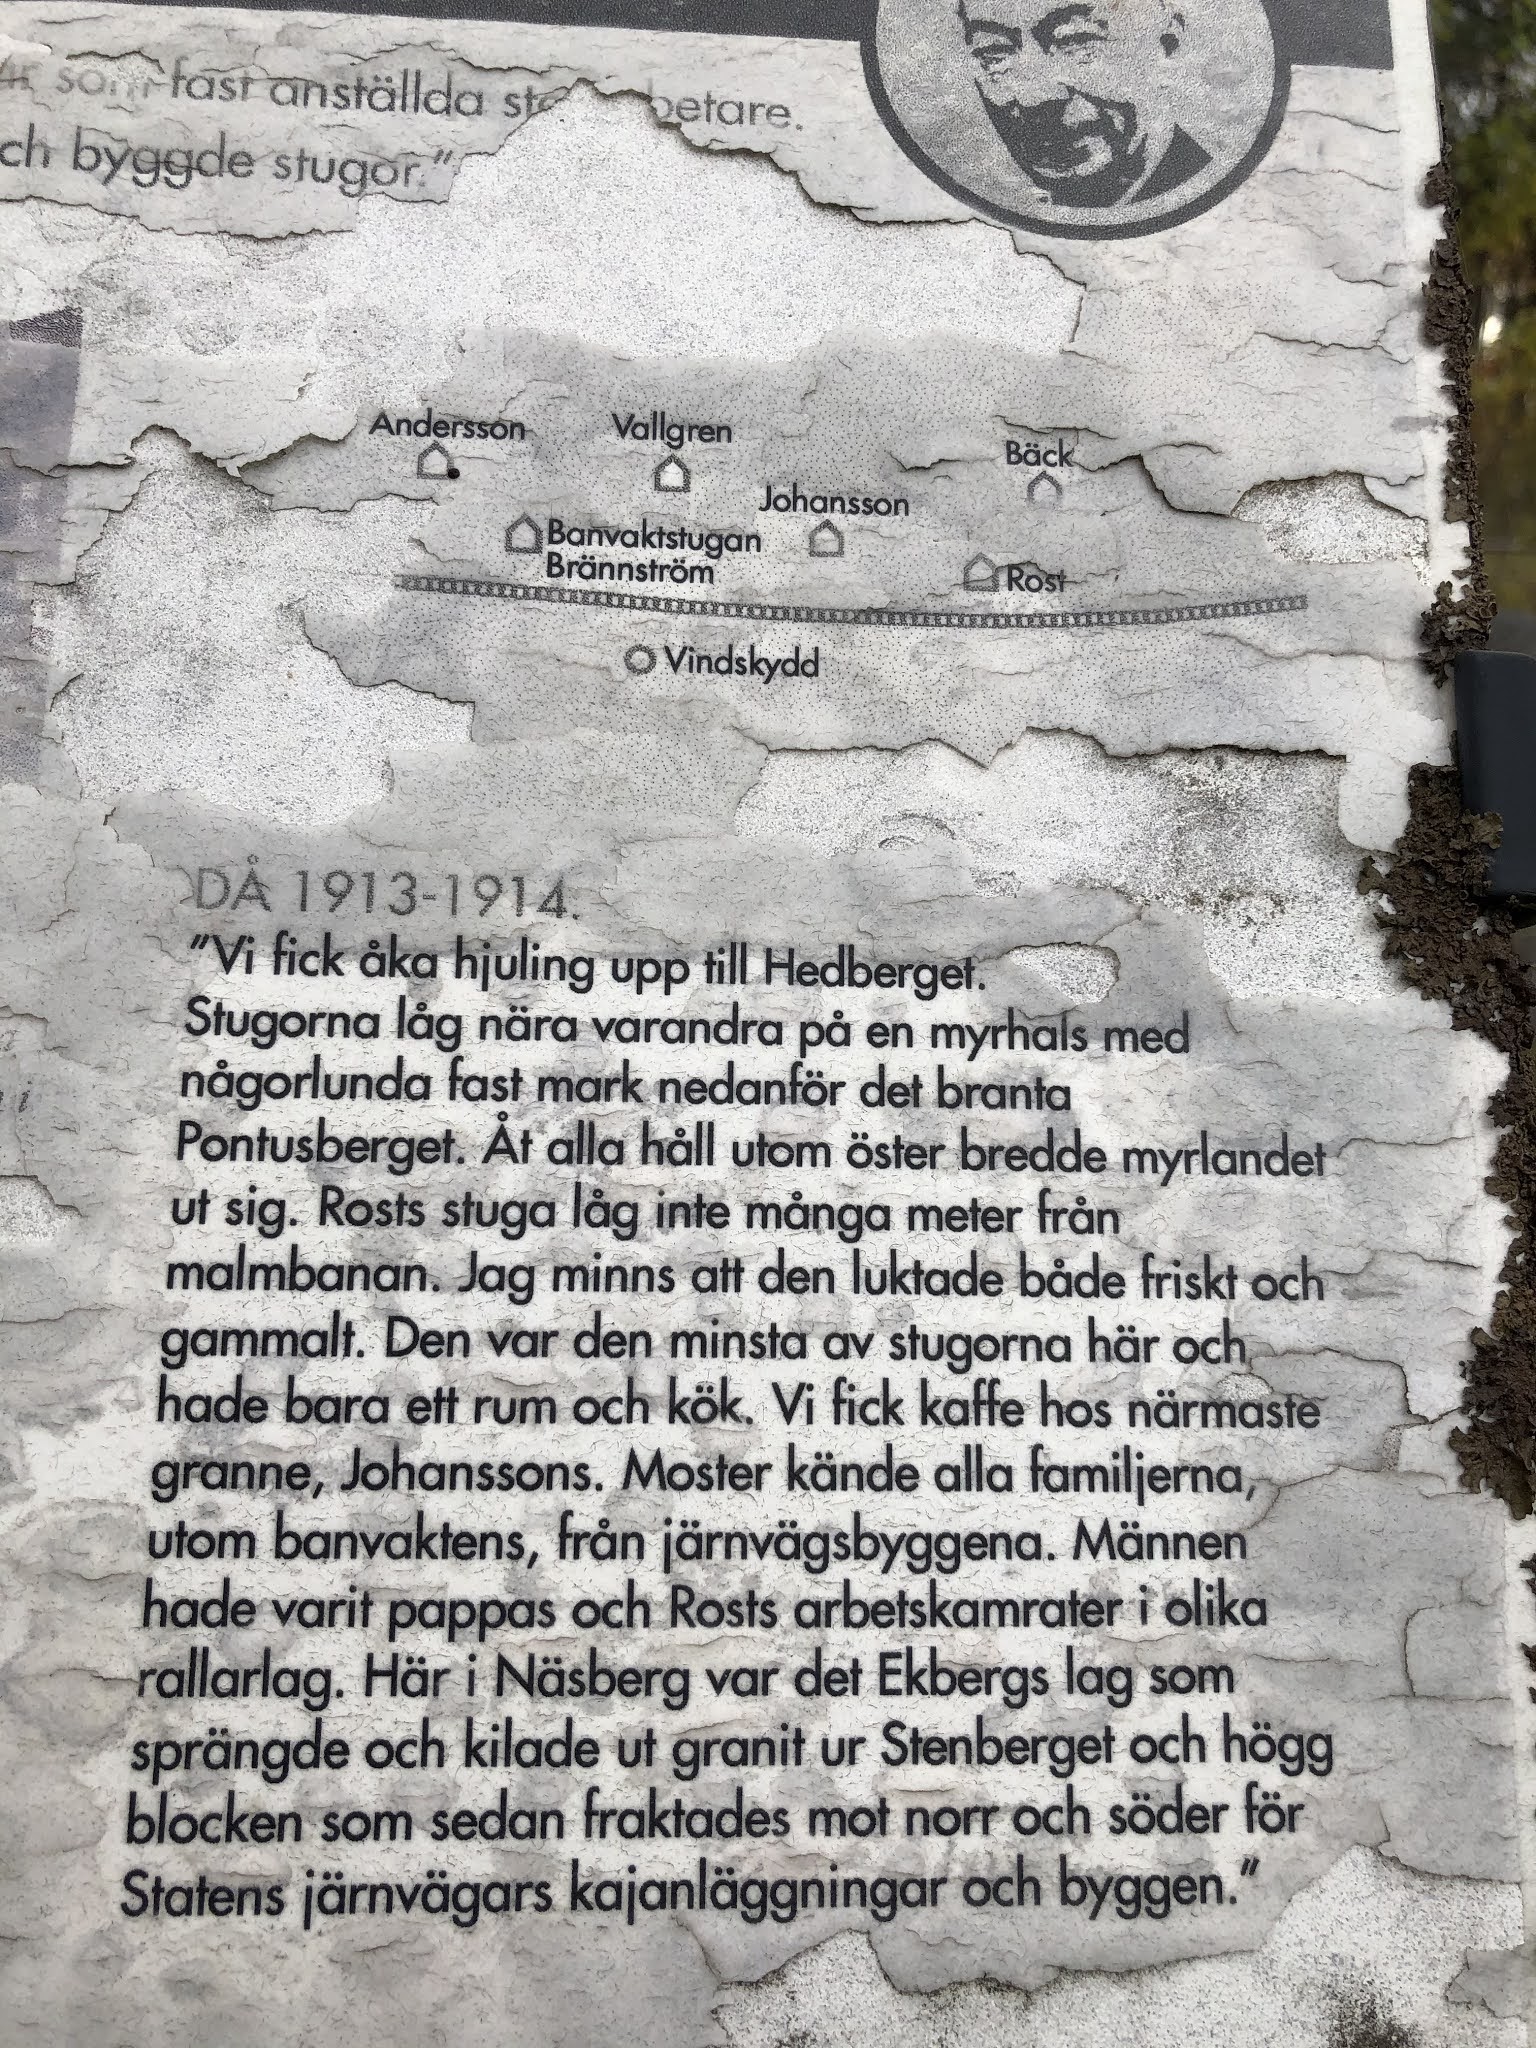 som fast anställda betare.
ch byggde stugor."
Andersson
Vallgren
Bäck
Johansson
Banvaktstugan
Brännström
Rost
Vindskydd
DÅ 1913-1914.
"Vi fick åka hjuling upp till Hedberget.
Stugorna låg nära varandra på en myrhals med
någorlunda fast mark nedanför det branta
Pontusberget. Åt alla håll utom öster bredde myrlandet
ut sig. Rosts stuga låg inte många meter från
malmbanan. Jag minns att den luktade både friskt och
gammalt. Den var den minsta av stugorna här och
hade bara ett rum och kök. Vi fick kaffe hos närmaste
granne, Johanssons. Moster kände alla familjerna,
utom banvaktens, från järnvägsbyggena. Männen
hade varit pappas och Rosts arbetskamrater i olika
rallarlag. Här i Näsberg var det Ekbergs lag som
sprängde och kilade ut granit ur Stenberget och högg
blocken som sedan fraktades mot norr och söder för
Statens järnvägars kajanläggningar och byggen."